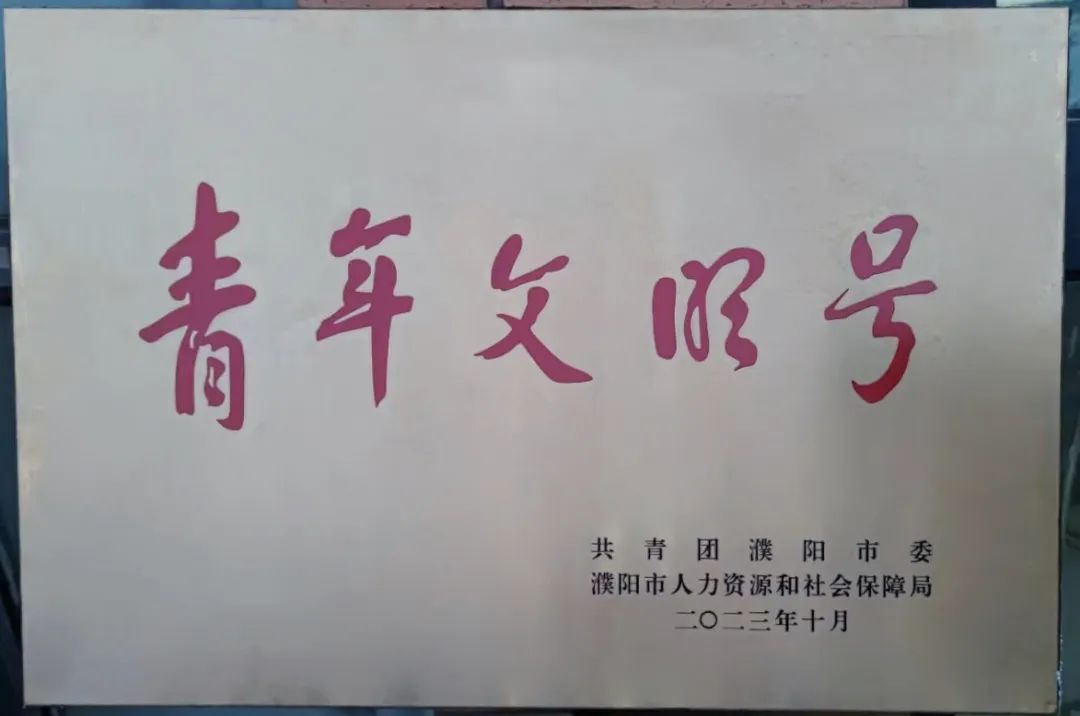 青年文明号
共青团濮阳市委
濮阳市人力资源和社会保障局
二〇二三年十月